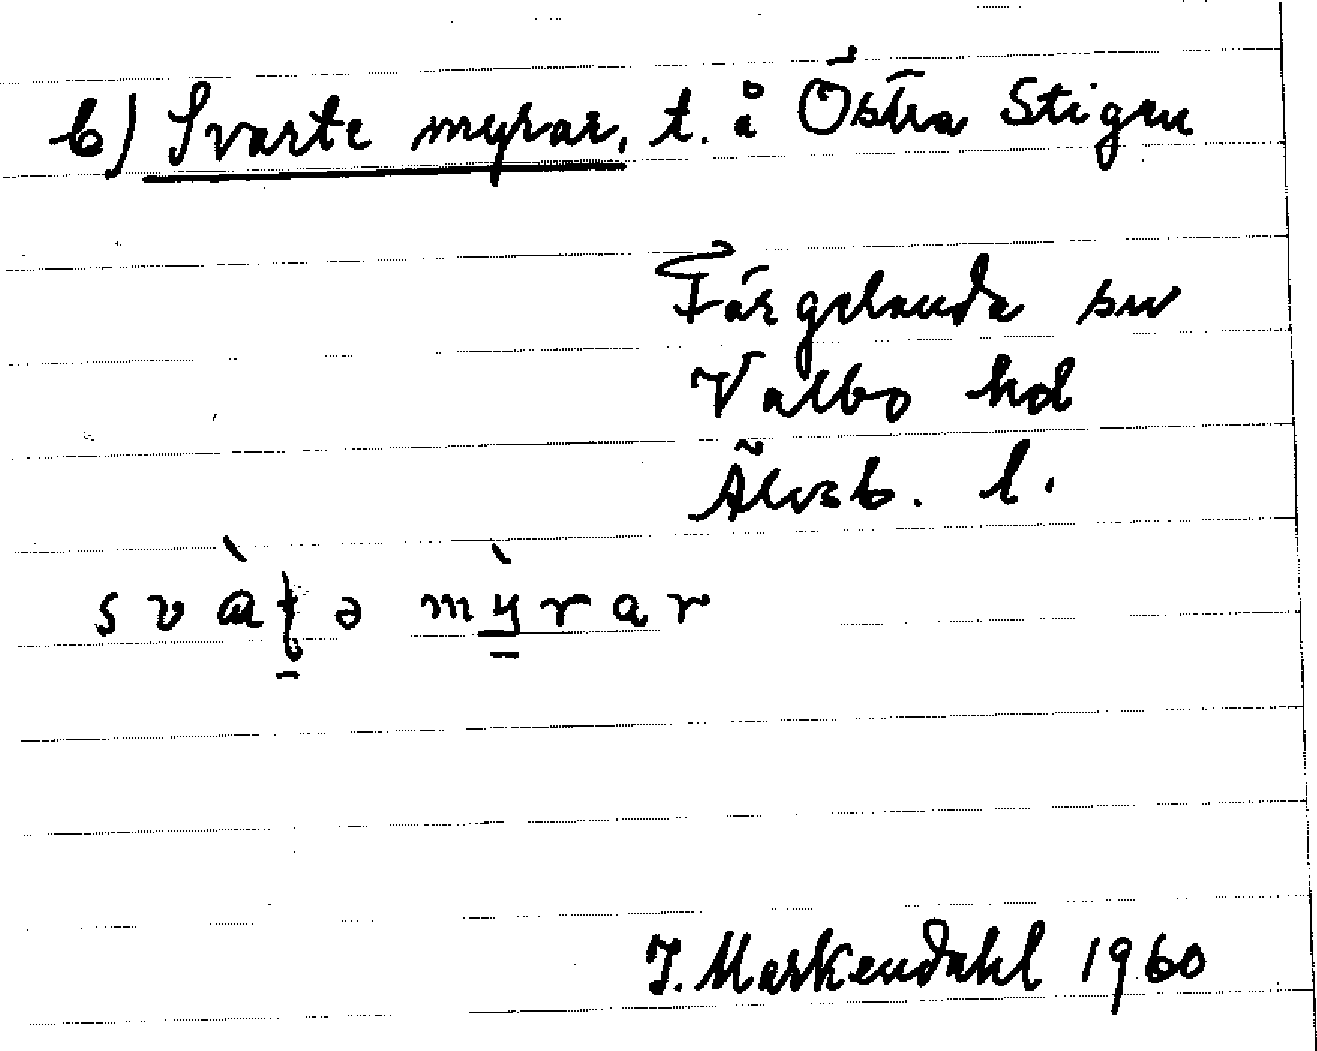 b) Svarte myrar, t. å Östra Stigen
Färgelanda sn
Valbo hd
Älvsb. l.
svàʈə mỳrar
J. Markendahl 1960